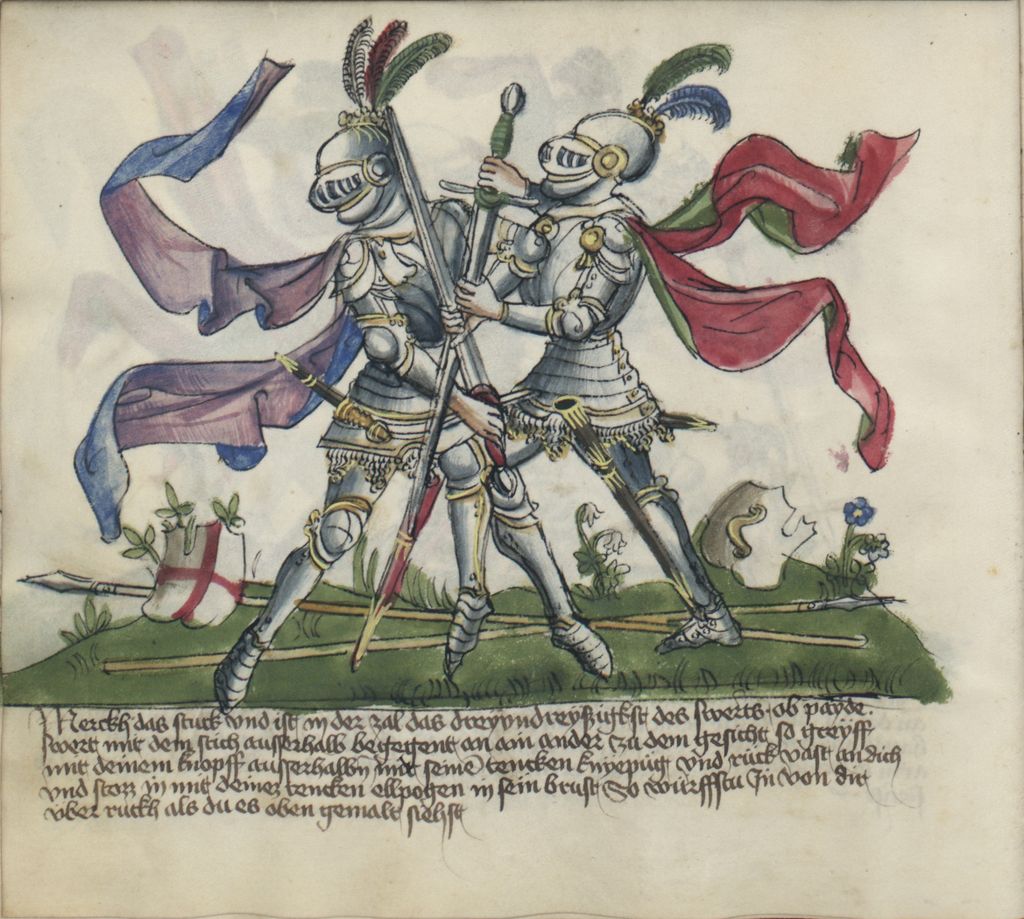 Merckh das stuck vnd ist in der zal das dreyvndreyssigist des swerts ob payde
swert mit dem stich ausserhalb begegent an ain ander zu dem gesicht so greyff
mit deinem knopff ausserhalbn mit seine tencken knyepüg vnd ruck vast an dich
vnd stos in mit deinez tencken ellpogen in sein brust So würffstu In von dir
vber ruckh als du es oben gemalt siehst